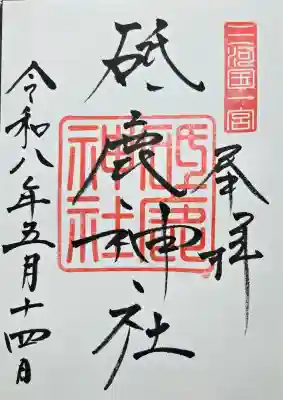 三河国一宮
奉拝
砥鹿神社
砥鹿神社
令和八年五月十四日